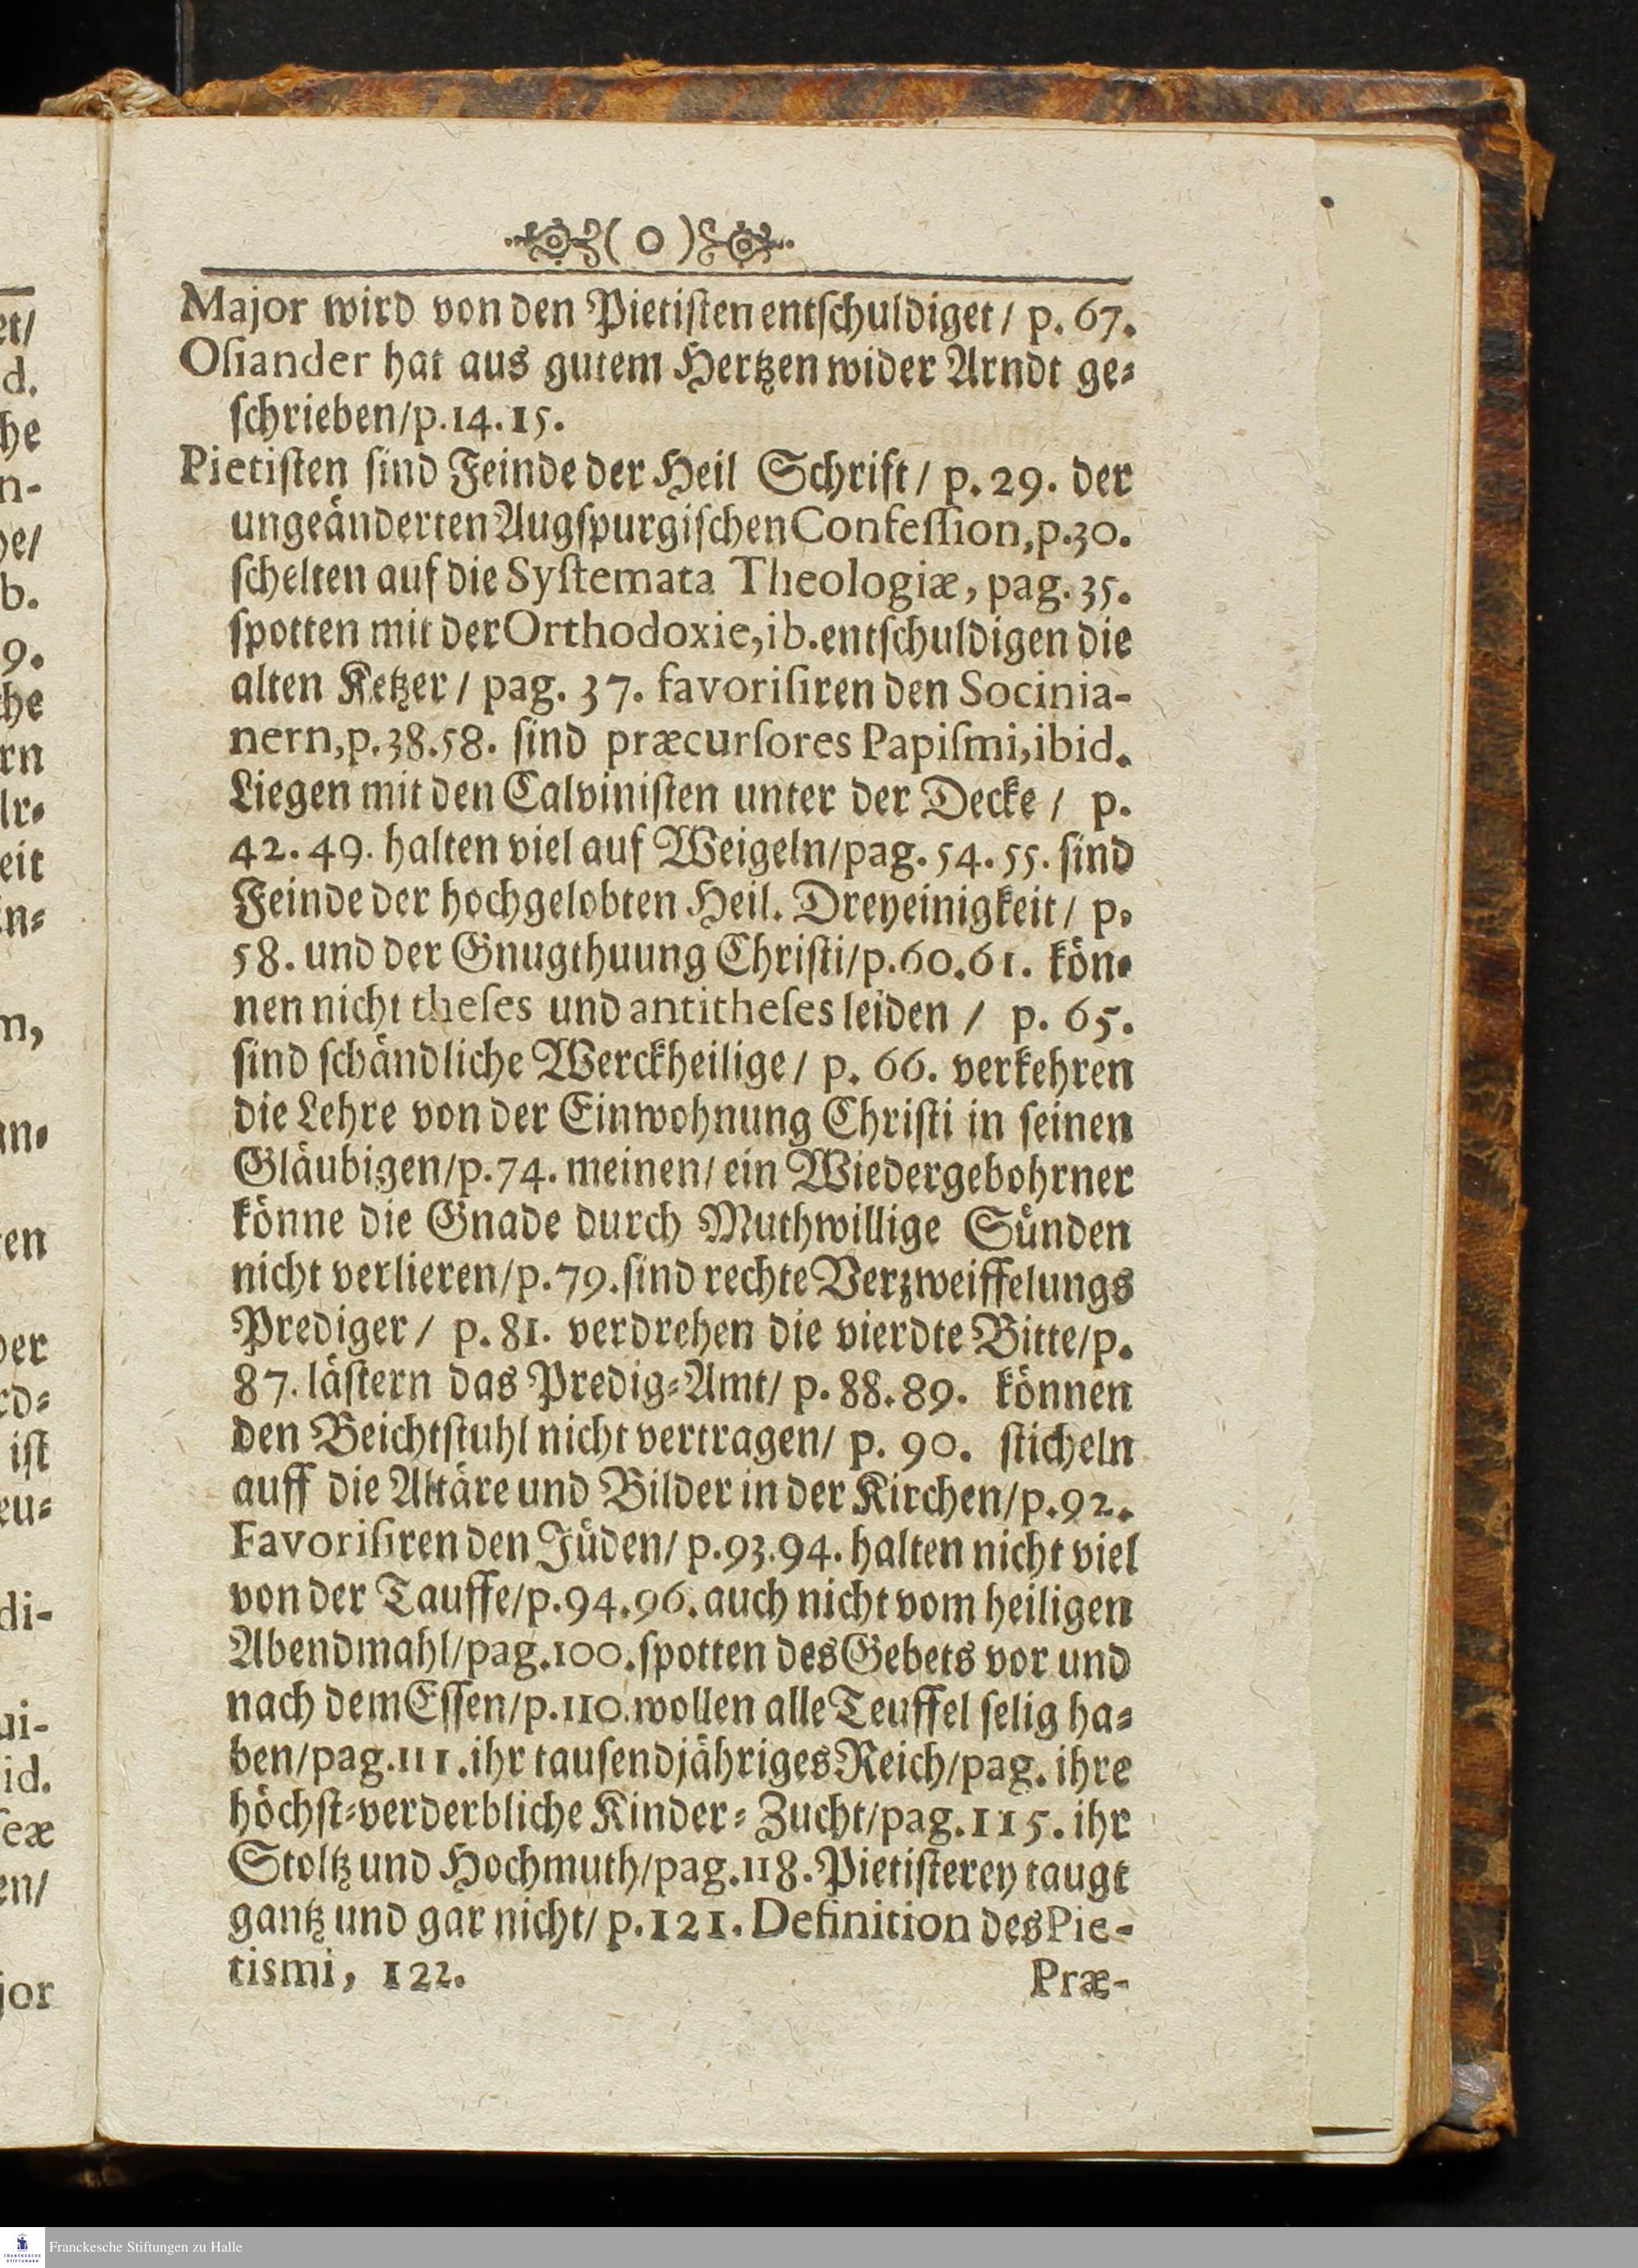 ( O )
Major wird von den Pietiſten entſchuldiget / p. 67.
Oſiander hat aus gutem Hertzen wider Arndt ge⸗
ſchrieben/p.14.15.
Pietiſten ſind Feinde der Heil Schrift / p. 29. der
ungeänderten Augſpurgiſchen Confeſſion, p.30.
ſchelten auf die Syſtemata Theologiæ, pag. 35.
ſpotten mit der Orthodoxie, ib. entſchuldigen die
alten Ketzer / pag. 37. favoriſiren den Socinia-
nern, p. 38.58. ſind præcurſores Papiſmi, ibid.
Liegen mit den Calviniſten unter der Decke / p.
42. 49. halten viel auf Weigeln/pag. 54. 55. ſind
Feinde der hochgelobten Heil. Dreyeinigkeit / p.
58. und der Gnugthuung Chriſti/p.60.61. kön⸗
nen nicht theſes und antitheſes leiden / p. 65.
ſind ſchändliche Werckheilige / p. 66. verkehren
die Lehre von der Einwohnung Chriſti in ſeinen
Gläubigen/p.74. meinen/ ein Wiedergebohrner
könne die Gnade durch Muthwillige Sünden
nicht verlieren/p.79. ſind rechte Verzweiffelungs
Prediger / p. 81. verdrehen die vierdte Bitte/p.
87. läſtern das Predig⸗Amt/ p. 88.89. können
den Beichtſtuhl nicht vertragen/ p. 90. ſticheln
auff die Altäre und Bilder in der Kirchen/p.92.
Favoriſiren den Jüden/ p.93.94. halten nicht viel
von der Tauffe/p.94.96. auch nicht vom heiligen
Abendmahl/pag.100. ſpotten des Gebets vor und
nach dem Eſſen/p.110. wollen alle Teuffel ſelig ha⸗
ben/pag.111. ihr tauſendjähriges Reich/pag. ihre
höchſt⸗verderbliche Kinder⸗Zucht/pag.115. ihr
Stoltz und Hochmuth/pag.118. Pietiſterey taugt
gantz und gar nicht/ p.121. Definition des Pie-
tismi, 122.
Præ-
Franckesche Stiftungen zu Halle